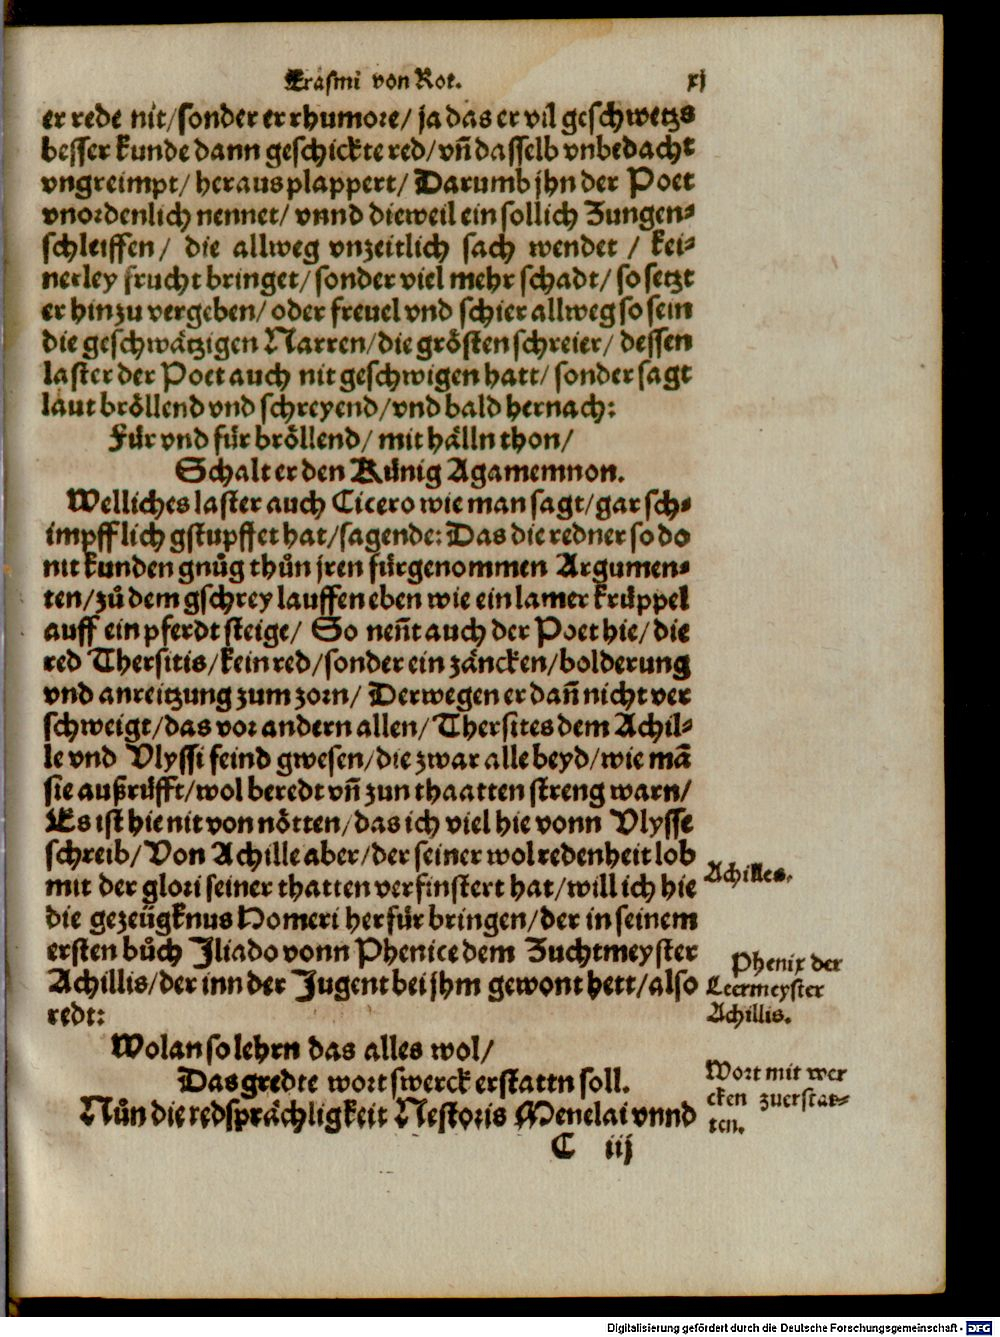 Erasmi von Rot. xj
er rede nit/sonder er rhumore/ ja das er vil geschwetzs
besser kunde dann geschickte red/vñ dasselb vnbedacht
vngreimpt/ heraus plappert/ Darumb jhn der Poet
vnordenlich nennet/ vnnd dieweil ein sollich Zungen⸗
schleiffen/ die allweg vnzeitlich sach wendet / kei⸗
nerley frucht bringet/sonder viel mehr schadt/ so setzt
er hinzu vergeben/ oder freuel vnd schier allweg so sein
die geschwätzigen Narren/die grösten schreier/ dessen
laster der Poet auch nit geschwigen hatt/ sonder sagt
laut bröllend vnd schreyend/vnd bald hernach:
Für vnd für bröllend/ mit hälln thon/
Schalt er den Künig Agamemnon.
Welliches laster auch Cicero wie man sagt/gar sch⸗
impfflich gstupffet hat/sagende: Das die redner so do
nit kunden gnůg thůn jren fürgenommen Argumen⸗
ten/zů dem gschrey lauffen eben wie ein lamer krüppel
auff ein pferdt steige/ So neñt auch der Poet hie/die
red Thersitis/kein red/sonder ein zäncken/bolderung
vnd anreitzung zum zorn/ Derwegen er dañ nicht ver
schweigt/das vor andern allen/ Thersites dem Achil⸗
le vnd Vlyssi feind gwesen/die zwar alle beyd/wie mã
sie außrüfft/wol beredt vñ zun thaatten streng warn/
Es ist hie nit von nötten/das ich viel hie vonn Vlysse
schreib/Von Achille aber/der seiner wolredenheit lob
mit der glori seiner thatten verfinstert hat/will ich hie
die gezeügknus Homeri herfür bringen/der in seinem
ersten bůch Iliado vonn Phenice dem Zuchtmeyster
Achillis/der inn der Jugent bei jhm gewont hett/also
redt:
Wolan so lehrn das alles wol/
Das gredte wort swerck erstattn soll.
Nůn die redsprächligkeit Nestoris Menelai vnnd
C iij
Achilles.
Phenix der
Leermeyster
Achillis.
Wort mit wer
cken zuerstat⸗
ten.
Digitalisierung gefördert durch die Deutsche Forschungsgemeinschaft - DFG